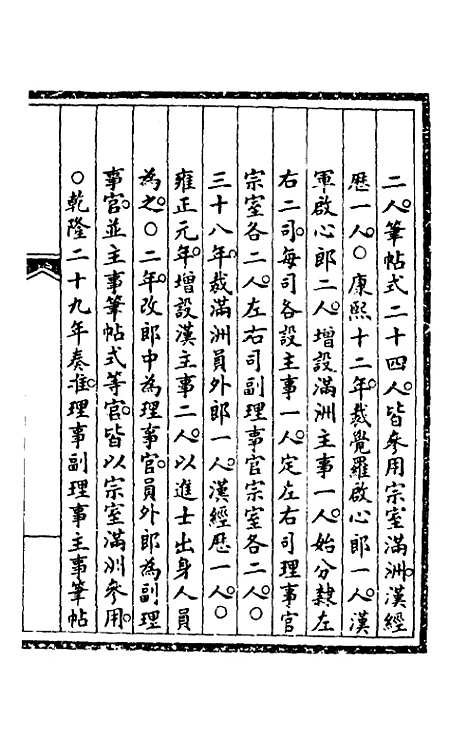 二人筆帖式二十四人皆參用宗室滿洲漢經
歷一人○康熙十二年裁覺羅啟心郎一人漢
軍啟心郎二人增設滿洲主事一人始分隸左
右二司每司各設主事一人定左右司理事官
宗室各二人左右司副理事官宗室各二人○
三十八年裁滿洲員外郎一人漢經歷一人○
雍正元年增設漢主事二人以進士出身人員
為之○二年改郎中為理事官員外郎為副理
事官並主事筆帖式等官皆以宗室滿洲參用
○乾隆二十九年奏准理事副理事主事筆帖